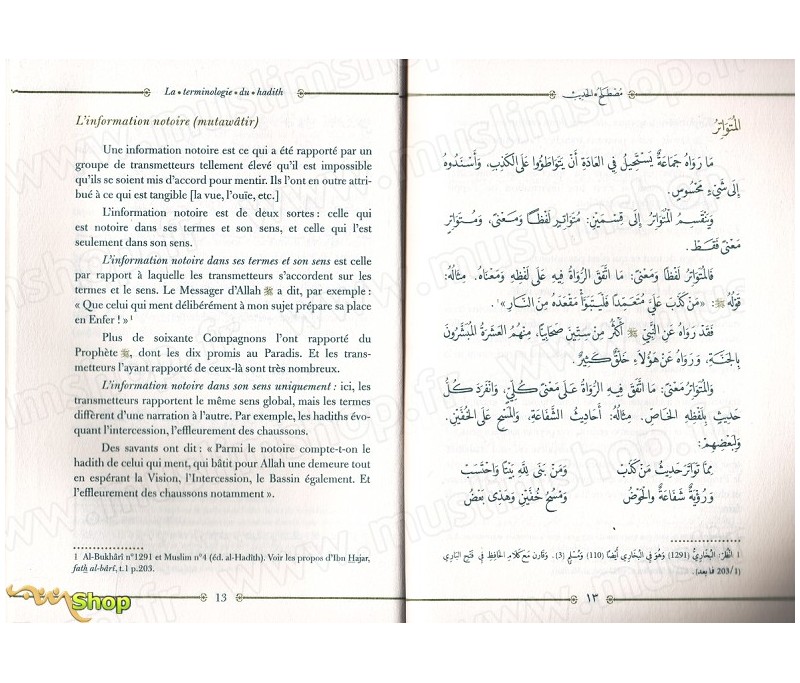 La • terminologie • du • hadith
L'information notoire (mutawâtir)
Une information notoire est ce qui a été rapporté par un
groupe de transmetteurs tellement élevé qu'il est impossible
qu'ils se soient mis d'accord pour mentir. Ils l'ont en outre attri-
bué à ce qui est tangible [la vue, l'ouïe, etc.]
L'information notoire est de deux sortes : celle qui
est notoire dans ses termes et son sens, et celle qui l'est
seulement dans son sens.
L'information notoire dans ses termes et son sens est celle
par rapport à laquelle les transmetteurs s'accordent sur les
termes et le sens. Le Messager d'Allah ﷺ a dit, par exemple :
« Que celui qui ment délibérément à mon sujet prépare sa place
en Enfer ! »¹
Plus de soixante Compagnons l'ont rapporté du
Prophète ﷺ, dont les dix promis au Paradis. Et les trans-
metteurs l'ayant rapporté de ceux-là sont très nombreux.
L'information notoire dans son sens uniquement : ici, les
transmetteurs rapportent le même sens global, mais les termes
diffèrent d'une narration à l'autre. Par exemple, les hadiths évo-
quant l'intercession, l'effleurement des chaussons.
Des savants ont dit : « Parmi le notoire compte-t-on le
hadith de celui qui ment, qui bâtit pour Allah une demeure tout
en espérant la Vision, l'Intercession, le Bassin également. Et
l'effleurement des chaussons notamment ».
1 Al-Bukhârî n°1291 et Muslim n°4 (éd. al-Hadîth). Voir les propos d'Ibn Hajar,
fath al-bârî, t.1 p.203.
13
Shop
مُصْطَلَحُ الحَدِيثِ
المُتَوَاتِرُ
مَا رَوَاهُ جَمَاعَةٌ يَسْتَحِيلُ فِي العَادَةِ أَنْ يَتَوَاطَؤُوا عَلَى الكَذِبِ، وَأَسْنَدُوهُ
إِلَى شَيْءٍ مَحْسُوسٍ.
وَيَنْقَسِمُ المُتَوَاتِرُ إِلَى قِسْمَيْنِ: مُتَوَاتِرٍ لَفْظًا وَمَعْنًى، وَمُتَوَاتِرٍ
مَعْنًى فَقَطْ.
فَالمُتَوَاتِرُ لَفْظًا وَمَعْنًى: مَا اتَّفَقَ الرُّوَاةُ فِيهِ عَلَى لَفْظِهِ وَمَعْنَاهُ. مِثَالُهُ:
قَوْلُهُ ﷺ: «مَنْ كَذَبَ عَلَيَّ مُتَعَمِّدًا فَلْيَتَبَوَّأْ مَقْعَدَهُ مِنَ النَّارِ»١.
فَقَدْ رَوَاهُ عَنِ النَّبِيِّ ﷺ أَكْثَرُ مِنْ سِتِّينَ صَحَابِيًّا، مِنْهُمُ العَشَرَةُ المُبَشَّرُونَ
بِالجَنَّةِ، وَرَوَاهُ عَنْ هَؤُلَاءِ خَلْقٌ كَثِيرٌ.
وَالمُتَوَاتِرُ مَعْنًى: مَا اتَّفَقَ فِيهِ الرُّوَاةُ عَلَى مَعْنًى كُلِّيٍّ، وَانْفَرَدَ كُلُّ
حَدِيثٍ بِلَفْظِهِ الخَاصِّ. مِثَالُهُ: أَحَادِيثُ الشَّفَاعَةِ، وَالمَسْحِ عَلَى الخُفَّيْنِ.
وَلِبَعْضِهِمْ:
مِمَّا تَوَاتَرَ حَدِيثُ مَنْ كَذَبْ وَمَنْ بَنَى لِلَّهِ بَيْتًا وَاحْتَسَبْ
وَرُؤْيَةٌ شَفَاعَةٌ وَالحَوْضُ وَمَسْحُ خُفَّيْنِ وَهَذِي بَعْضُ
١ انْظُرْ: البُخَارِيُّ (1291) وَهُوَ فِي البُخَارِي أَيْضًا (110) وَمُسْلِمٌ (3). وَقَارِنْ مَعَ كَلَامِ الحَافِظِ فِي فَتْحِ البَارِي
(203/1 فَمَا بَعد).
١٣
www.muslimshop.fr